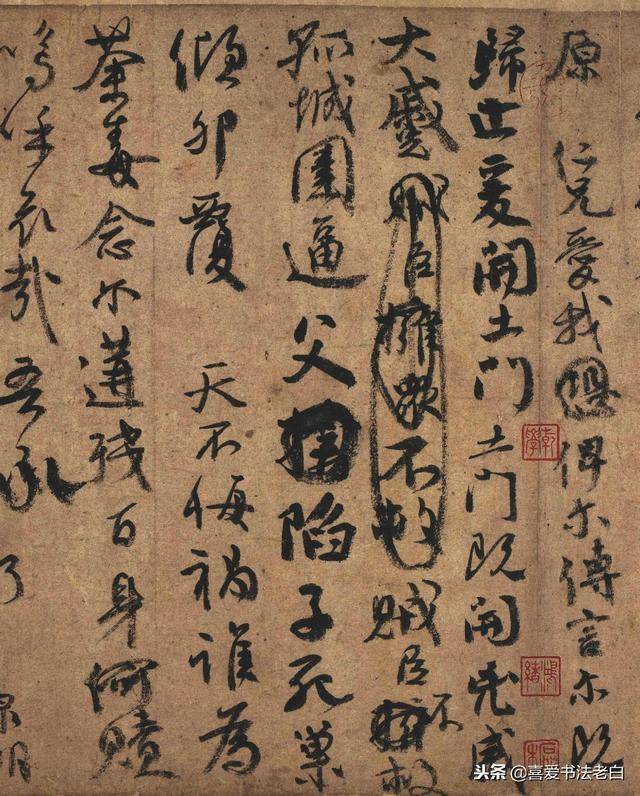 原 仁兄愛我俾尒傳言尒既
歸止爰開土門土門既開凶威
大蹙賊臣擁眾不救賊臣不救
孤城圍逼父陷子死巢
傾卵覆 天不悔禍誰為
荼毒念尒遘殘百身何贖
嗚呼哀哉吾承
乃
泉明
乾學
头条 @喜爱书法老白